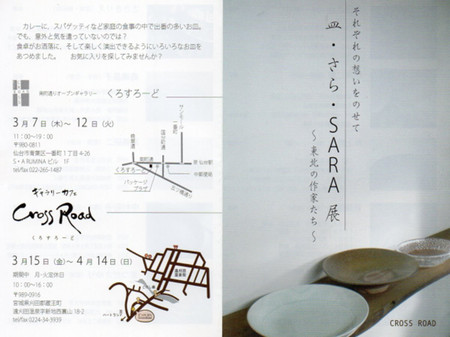 カレーに、スパゲッティなど家庭の食事の中で出番の多いお皿。
でも、意外と気を遣っていないのでは？
食卓がお洒落に、そして楽しく演出できるようにいろいろなお皿を
あつめました。　お気に入りを探してみませんか？
南町通りオープンギャラリー　くろすろーど
3月7日（木）～ 12日（火）
11：00～19：00
〒980-0811
仙台市青葉区一番町1丁目4-26
S・A RUMINA ビル　1F
tel/fax 022-265-1487
サンモール一番町
南町通
くろすろーど
仙台駅
ギャラリーカフェ
Cross Road
くろすろーど
3月15日（金）～ 4月14日（日）
期間中　月・火定休日
10：00～16：00
〒989-0916
宮城県刈田郡蔵王町
遠刈田温泉字新地西裏山 18-2
tel/fax 0224-34-3939
それぞれの想いをのせて
皿・さら・SARA 展
～東北の作家たち～
CROSS ROAD